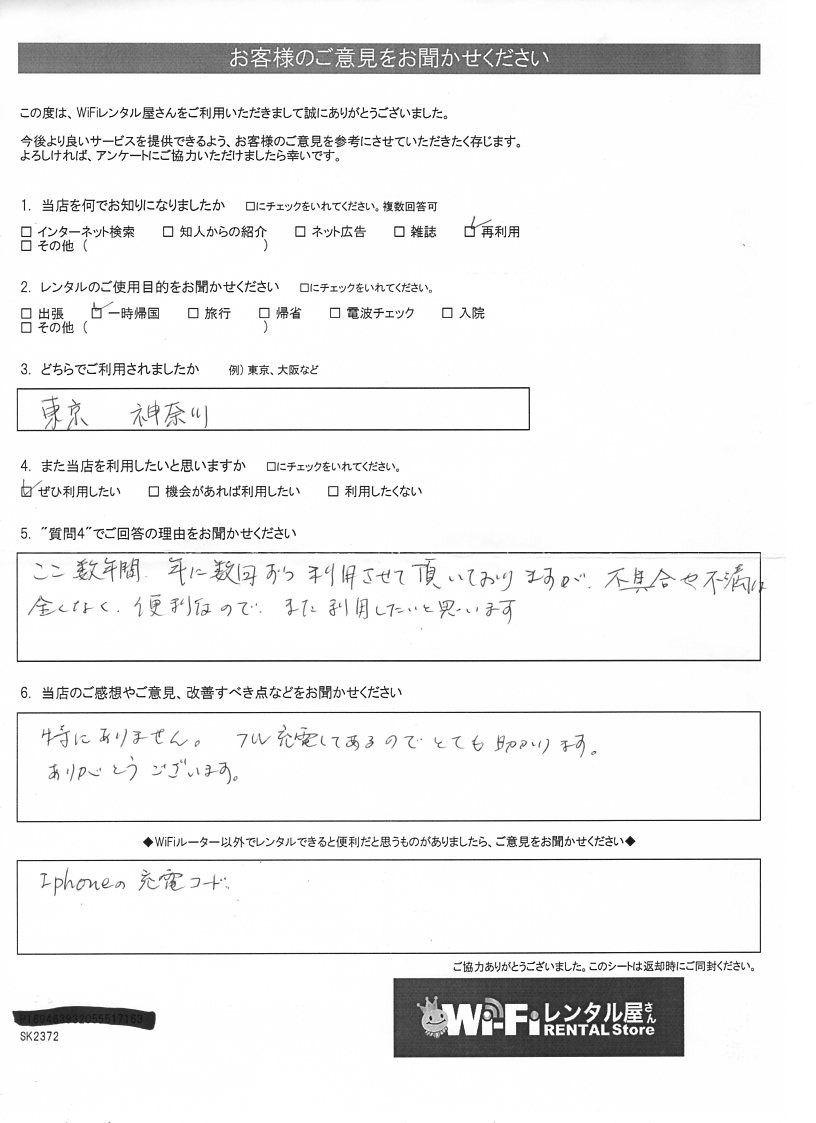 お客様のご意見をお聞かせください
この度は、WiFiレンタル屋さんをご利用いただきまして誠にありがとうございました。
今後より良いサービスを提供できるよう、お客様のご意見を参考にさせていただきたく存じます。
よろしければ、アンケートにご協力いただけましたら幸いです。
1. 当店を何でお知りになりましたか □にチェックをいれてください。複数回答可
□ インターネット検索 □ 知人からの紹介 □ ネット広告 □ 雑誌 ☑ 再利用
□ その他 ( )
2. レンタルのご使用目的をお聞かせください □にチェックをいれてください。
□ 出張 ☑ 一時帰国 □ 旅行 □ 帰省 □ 電波チェック □ 入院
□ その他 ( )
3. どちらでご利用されましたか 例）東京、大阪など
東京 神奈川
4. また当店を利用したいと思いますか □にチェックをいれてください。
☑ ぜひ利用したい □ 機会があれば利用したい □ 利用したくない
5. "質問4"でご回答の理由をお聞かせください
ここ数年間、年に数回おつ利用させて頂いておりますが、不具合や不満は
全くなく、便利なので、また利用したいと思います
6. 当店のご感想やご意見、改善すべき点などをお聞かせください
特にありません。 フル充電してあるのでとても助かります。
ありがとうございます。
◆WiFiルーター以外でレンタルできると便利だと思うものがありましたら、ご意見をお聞かせください◆
Iphoneの充電コード、
ご協力ありがとうございました。このシートは返却時にご同封ください。
Wi-Fiレンタル屋さん
RENTAL Store
SK2372